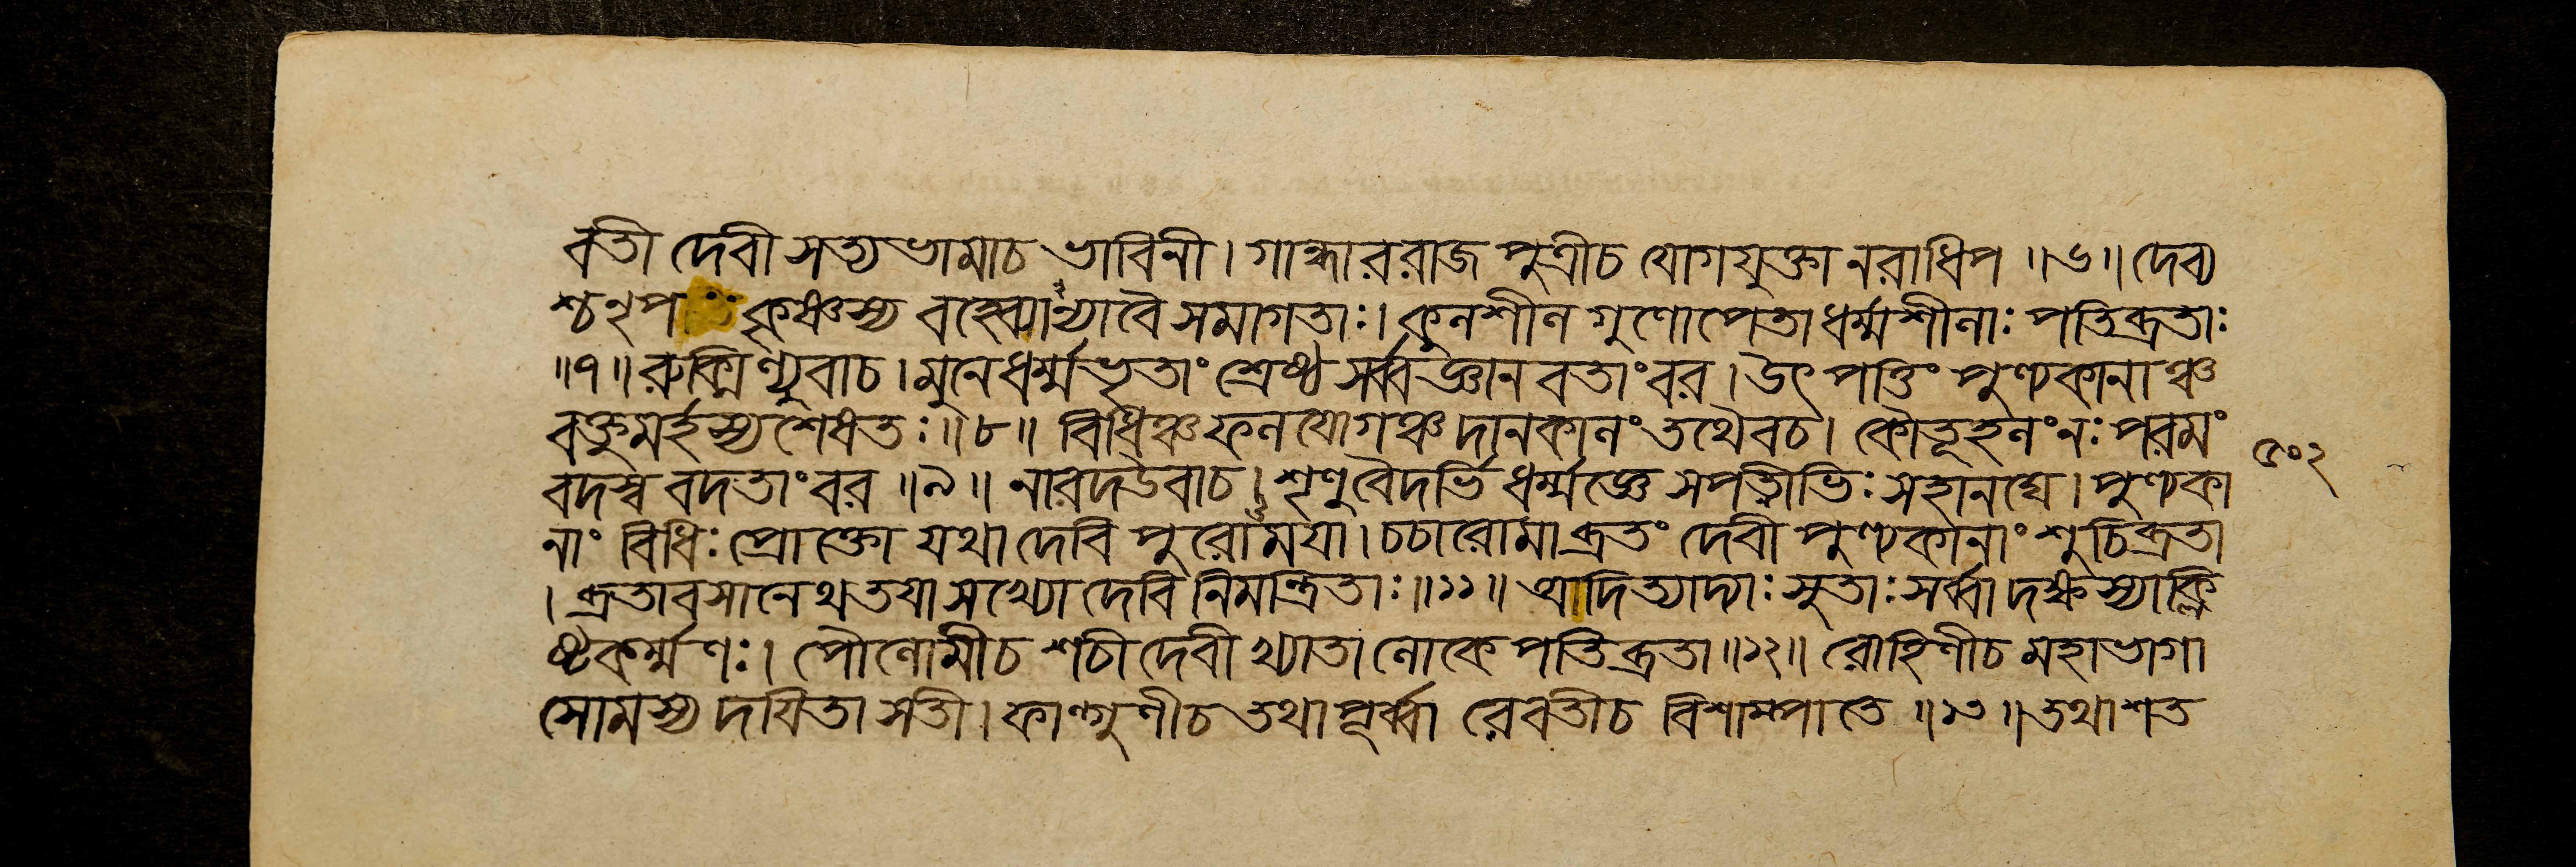 বতী দেবী সত্যভামাচ ভাবিনী। গান্ধাররাজ পুত্রীচ যোগযুক্তা নরাধিপ ॥৬॥ দেব্য
শ্চনৃপ কৃষ্ণস্য বহ্ব্যোন্যাবৈ সমাগতাঃ। কুলশীল গুণোপেতা ধর্ম্মশীলাঃ পতিব্রতাঃ
॥৭॥ রুক্মিণ্যুবাচ। মুনে ধর্ম্মভৃতাং শ্রেষ্ঠ সর্ব্বজ্ঞান বতাংবর। উৎপত্তিং পুণ্যকানাঞ্চ
বক্তুমর্হস্যশেষতঃ॥৮॥ বিধিঞ্চ ফলযোগঞ্চ দানকালং তথৈবচ। কৌতূহলং নঃ পরমং
বদস্ব বদতাংবর ॥৯॥ নারদউবাচ। শৃণু বৈদর্ভি ধর্ম্মজ্ঞে সপত্নীভিঃ সহানঘে। পুণ্যকা
নাং বিধিঃ প্রোক্তো যথা দেবি পুরোময়া। চচারোমা ব্রতং দেবী পুণ্যকানাং শুচিব্রতা
। ব্রতাবসানেথ তয়া সখ্যো দেবি নিমান্ত্রিতাঃ॥১১॥ আদিত্যাদ্যাঃ সুতাঃ সর্ব্বা দক্ষস্যাক্লি
ষ্টকর্ম্মণঃ। পৌলোমীচ শচী দেবী খ্যাতা লোকে পতিব্রতা॥১২॥ রোহিণীচ মহাভাগা
সোমস্য দয়িতা সতী। ফাল্গুণীচ তথা পূর্ব্বা রেবতীচ বিশাম্পাতে ॥১৩॥ তথা শত
৫০২